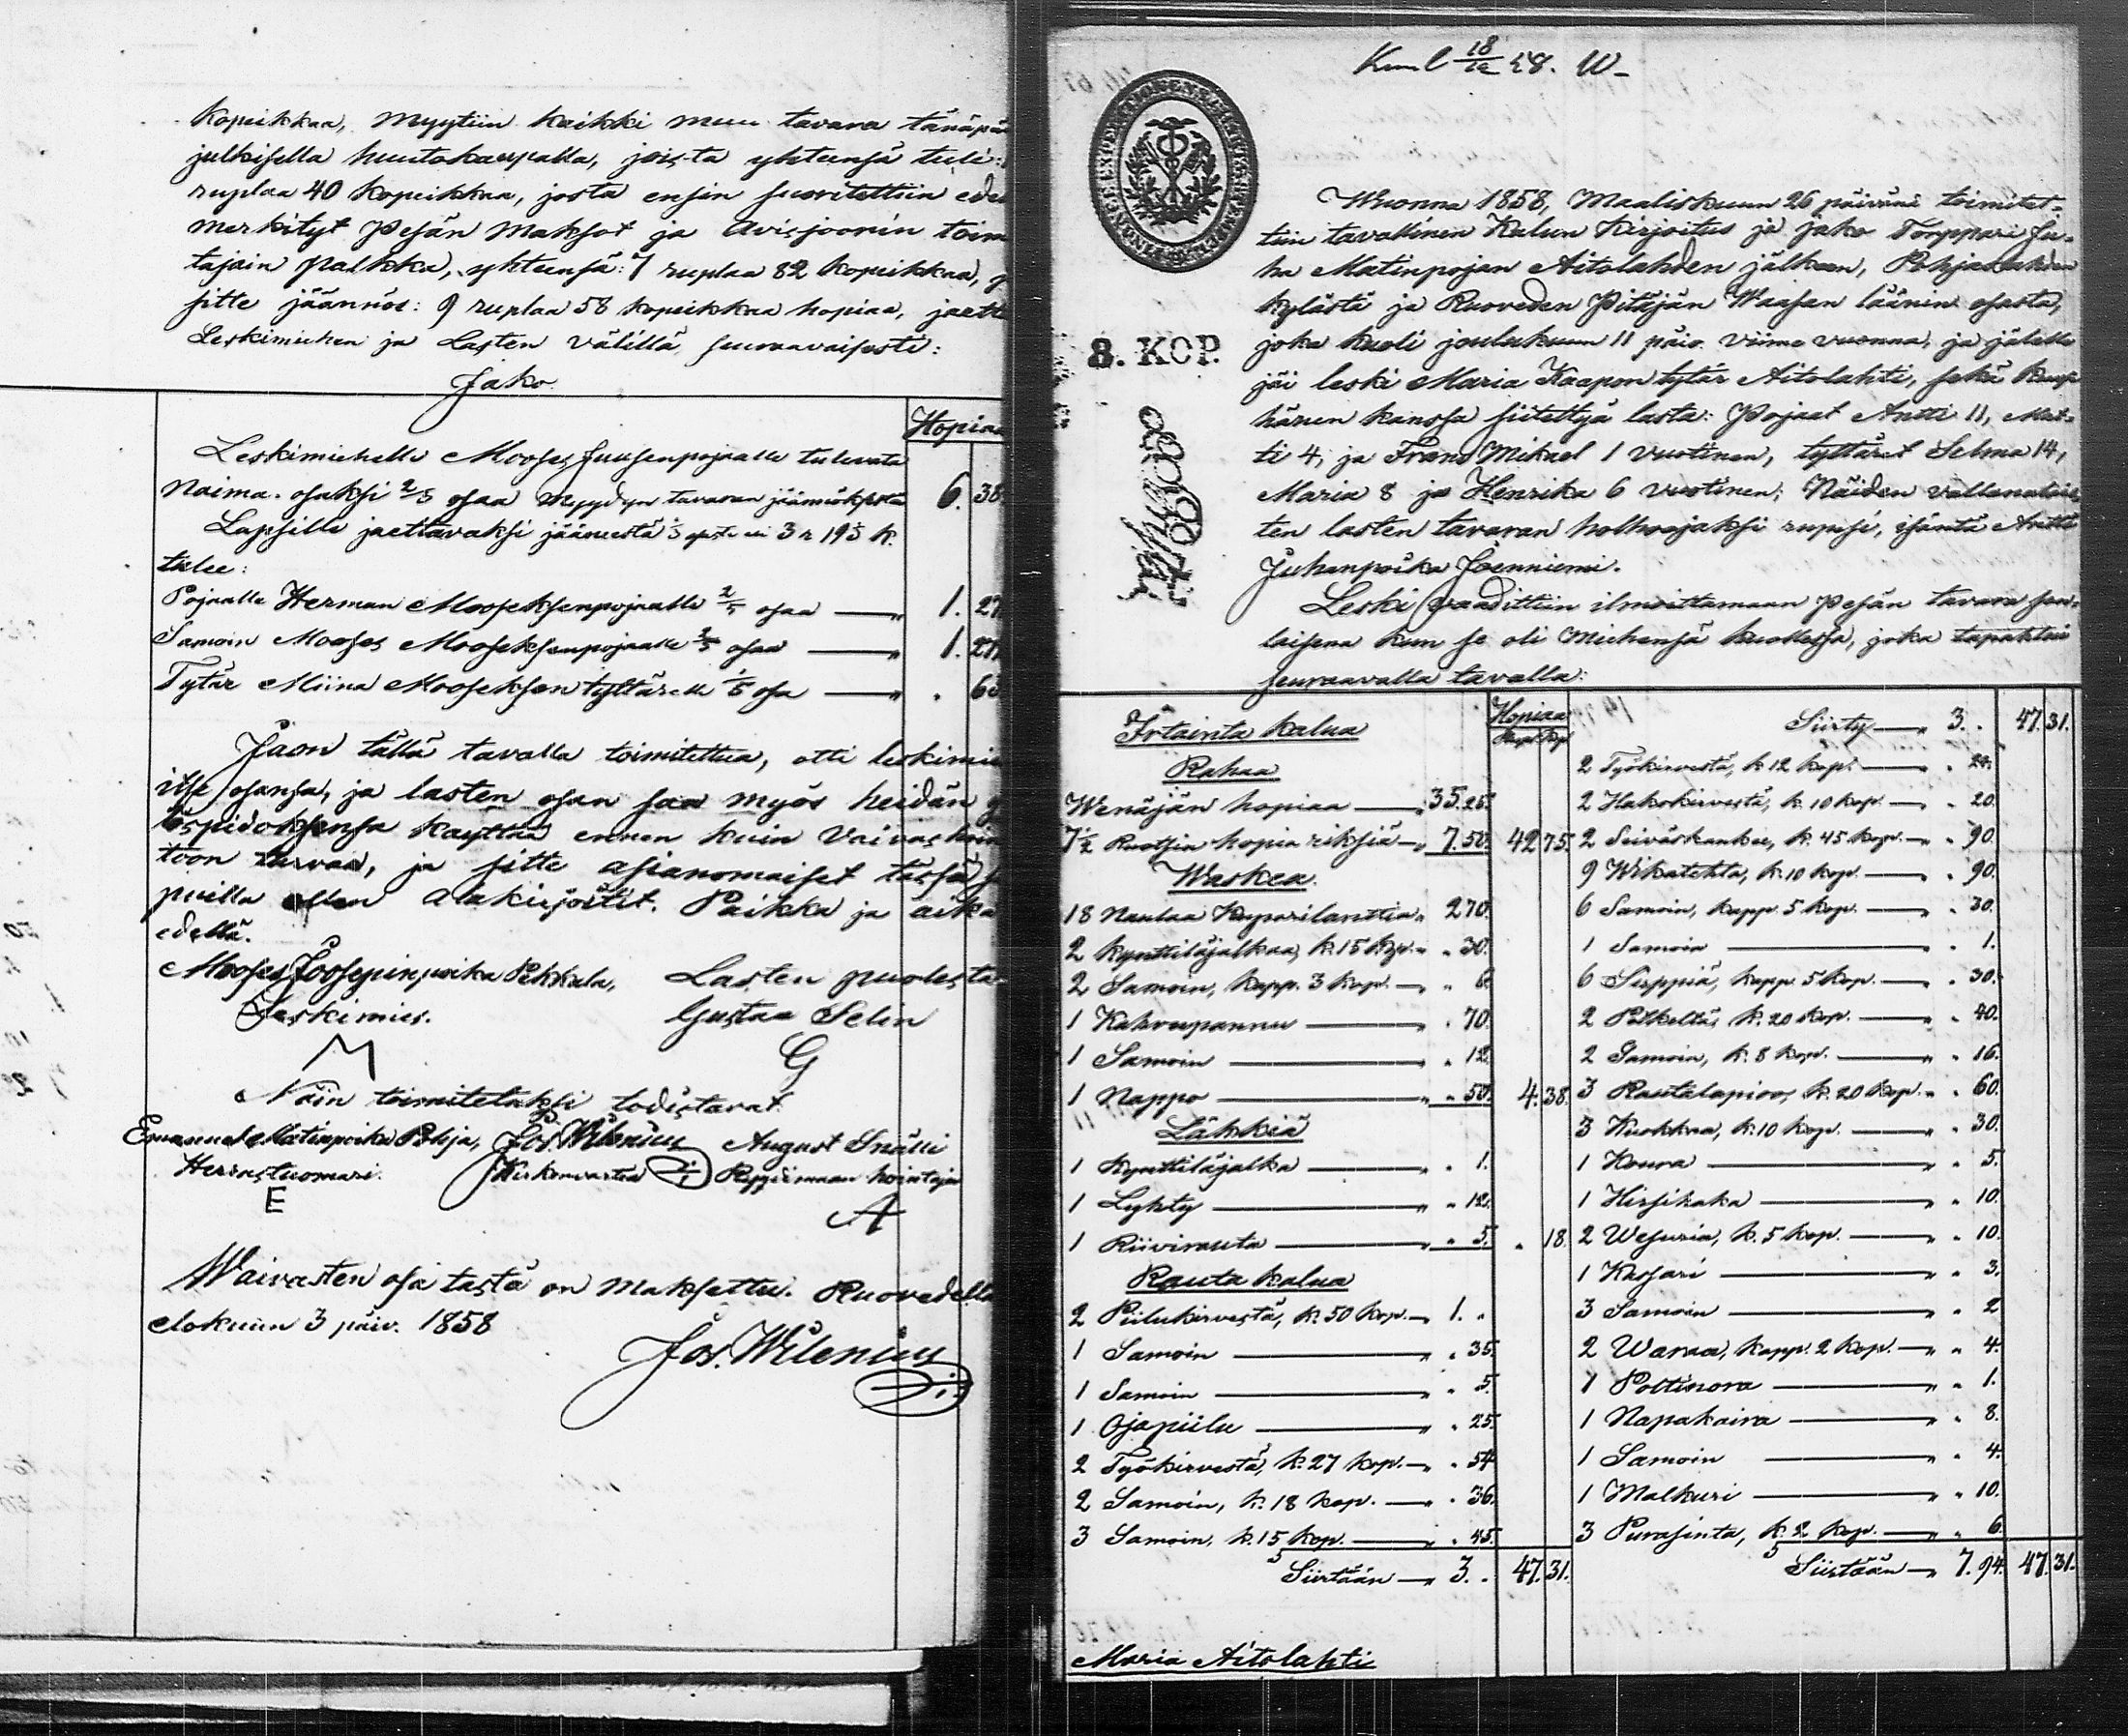 kopeikkaa, myytiin kaikki muu tavara tänäpä
julkisella huutokaupalla, joista yhteensä tuli:
ruplaa 40 kopeikkaa, josta ensin suoritettiin edel
merkityt Pesän maksot ja Avisjoonin toim
tajain palkka, yhteensä: 7 ruplaa 82 kopeikkaa,
sitte jäännös: 9 ruplaa 58 kopeikkaa hopiaa, jaett
Leskimiehen ja Lasten välillä seuraavaisesti:
Jako.
Hopiaa
Leskimiehelle Mooses Juusenpojalle tulevata
Naima-osaksi 2/3 osaa myydyn tavaran jäännöksestä 6. 38
Lapsille jaettavaksi jääneestä 1/3 3 r 19 1/3 k.
tulee:
Pojalle Herman Mooseksenpojalle 2/5 osaa — 1. 27
Samoin Mooses Mooseksenpojalle 2/5 osaa — 1. 27
Tytär Miina Mooseksen tyttärelle 1/5 osa — „ 63
Jaon tällä tavalla toimitettua, otti leskimies
itse osansa, ja lasten osan saa myös heidän
käyttää ennen kuin Vaivashoin
toon, ja sitte asianomaiset tässä
puilla allen alakirjoitit. Paikka ja aika
edellä.
Mooses Joosepinpoika Pekkala, Lasten puolesta
Leskimies. Gustaa Selin
M G
Näin toimitetuksi todistavat
Emanuel Matinpoika Pohja, Jos. Wilenius August Snälli
Herrastuomari. Kirkonvartia Pippurimaan hointaja
E A
Waivasten osa tästä on maksettu. Ruovedellä
elokuun 3 päiv. 1858
Jos. Wilenius
18/12 58. W-
8. KOP.
Wuonna 1858, Maaliskuun 26 päivänä toimitet-
tiin tavallinen Kalun Kirjoitus ja jako Torppari Ju-
ha Matinpojan Aitolahden jälkeen, Pohjaslahden
kylästä ja Ruoveden Pitäjän Waasan läänin osasta,
joka kuoli joulukuun 11 päiv. viime vuonna, ja jälelle
jäi leski Maria Kaapon tytär Aitolahti, sekä kuusi
hänen kanssa siitettyä lasta: Pojaat Antti 11, Mat-
ti 4, ja Frans Mikael 1 vuotinen, tyttäret Selma 14,
Maria 8 ja Henrika 6 vuotinen; Näiden vallanalais-
ten lasten tavaran holhoojaksi rupesi, isäntä Antti
Juhanpoika Joenniemi.
Leski vaadittiin ilmoittamaan Pesän tavara sen-
laisena kun se oli Miehensä kuollessa, joka tapahtui
seuraavalla tavalla:
Irtainta kalua Hopiaa
Rupl Kop
Rahaa
Wenäjän hopiaa — 35. 25.
7 1/2 Ruotsin hopia riksiä — 7. 50. 42 75.
Waskea.
18 Naulaa Kuparilanttia „ 2 70.
2 Kynttiläjalkaa, k. 15 kop. „ „ 30.
2 Samoin, kapp. 3 kop. — „ 6.
1 Kahveepannu — „ 70.
1 Samoin — „ 12.
1 Nappo — „ 50. 4. 38.
Läkkiä
1 Kynttiläjalka — „ 1.
1 Lyhty — „ 12.
1 Riivirauta — „ 5. „ 18.
Rauta kalua
2 Piilukirvestä, k. 50 kop. — 1. „
1 Samoin — „ 35.
1 Samoin — „ 5.
1 Ojapiilu — „ 25.
2 Työkirvestä, k. 27 kop. — „ 54
2 Samoin, k. 18 kop. — „ 36.
3 Samoin, k. 15 kop. — „ 45.
Siirtään — 3. „ 47. 31.
Siirty — 3. „ 47. 31.
2 Työkirvestä, k. 12 kop. — „ 24.
2 Hakokirvestä, k. 10 kop. — „ 20.
2 Seiväskankee, k. 45 kop. — „ 90.
9 Wikatehta, k. 10 kop. — „ 90.
6 Samoin, kapp. 5 kop. — „ 30.
1 Samoin — „ 1.
6 Sirppiä, kapp. 5 kop. — „ 30.
2 Pölkeltä, k. 20 kop. — „ 40.
2 Samoin, k. 8 kop. — „ 16.
3 Rautalapioo, k. 20 kop. „ „ 60.
3 Kuokkaa, k. 10 kop. — „ 30.
1 Koura — „ 5.
1 Hirsihaka — „ 10.
2 Wesuria, k. 5 kop. — „ 10.
1 Kassari — „ 3.
3 Samoin — „ 2
2 Waraa, kapp. 2 kop. — „ 4.
1 Polttinora — „ 1.
1 Napakaira — „ 8.
1 Samoin — „ 4.
1 Malkuri — „ 10.
3 Purasinta, k. 2 kop. — „ 6.
Siirtään — 7. 94. 47. 31.
Maria Aitolahti